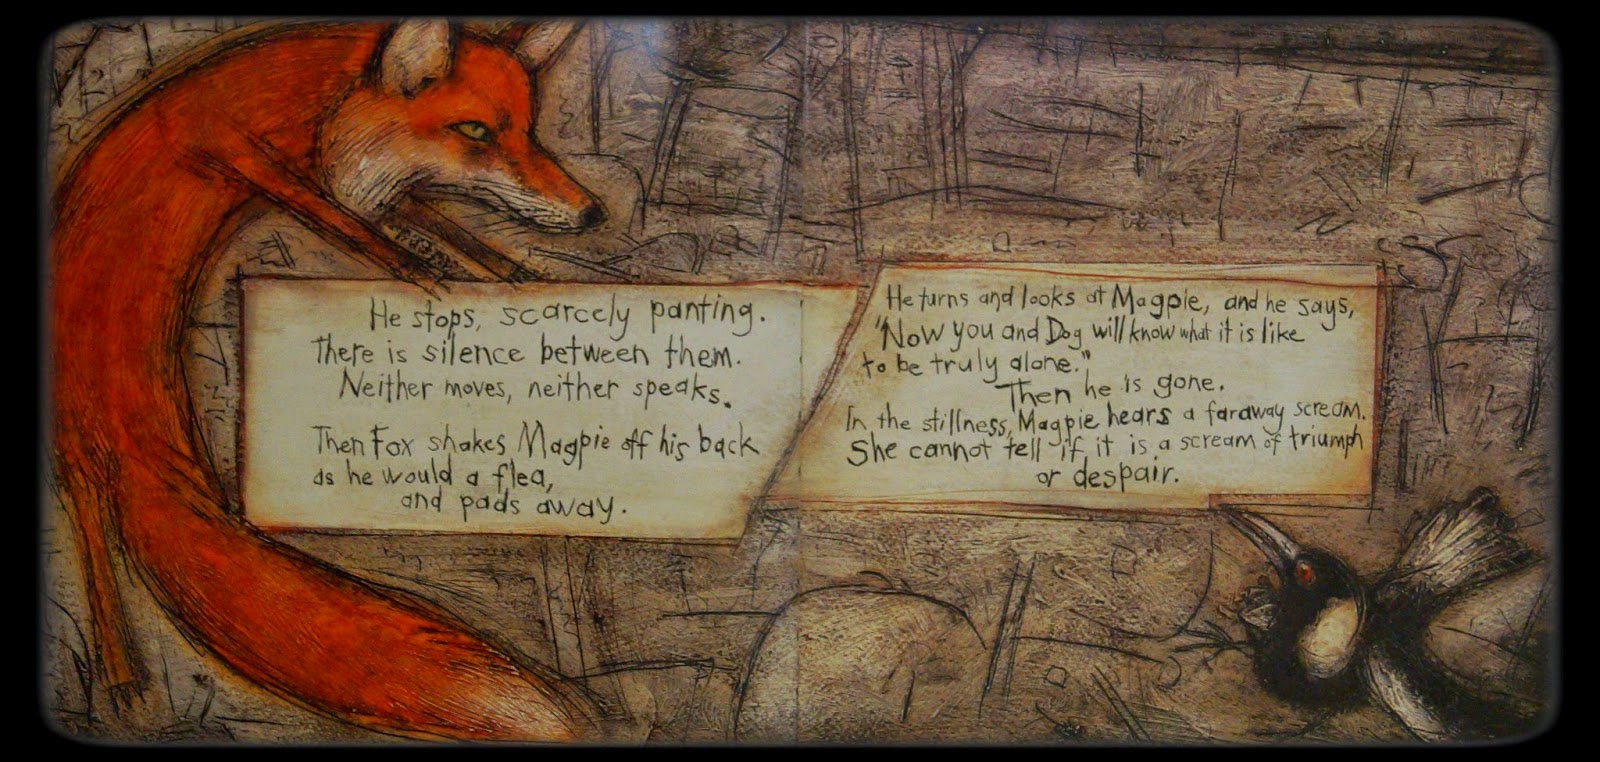 He stops, scarcely panting.
There is silence between them.
Neither moves, neither speaks.
Then Fox shakes Magpie off his back
as he would a flea,
and pads away.
He turns and looks at Magpie, and he says,
"Now you and Dog will know what it is like
to be truly alone."
Then he is gone.
In the stillness, Magpie hears a faraway scream.
She cannot tell if it is a scream of triumph
or despair.